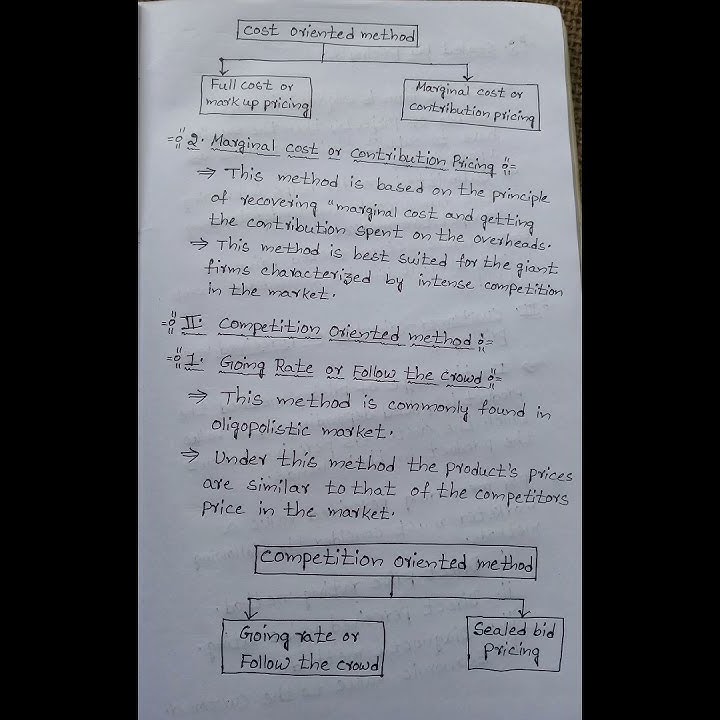 Cost oriented method
Full cost or
mark up pricing
Marginal cost or
contribution pricing
2. Marginal cost or contribution Pricing
⇒ This method is based on the principle
of recovering "marginal cost and getting
the contribution spent on the overheads.
⇒ This method is best suited for the giant
firms characterized by intense competition
in the market.
II. Competition oriented method
1. Going Rate or Follow the crowd
⇒ This method is commonly found in
oligopolistic market.
⇒ Under this method the product's prices
are similar to that of the competitors
price in the market.
Competition oriented method
Going rate or
Follow the crowd
Sealed bid
pricing